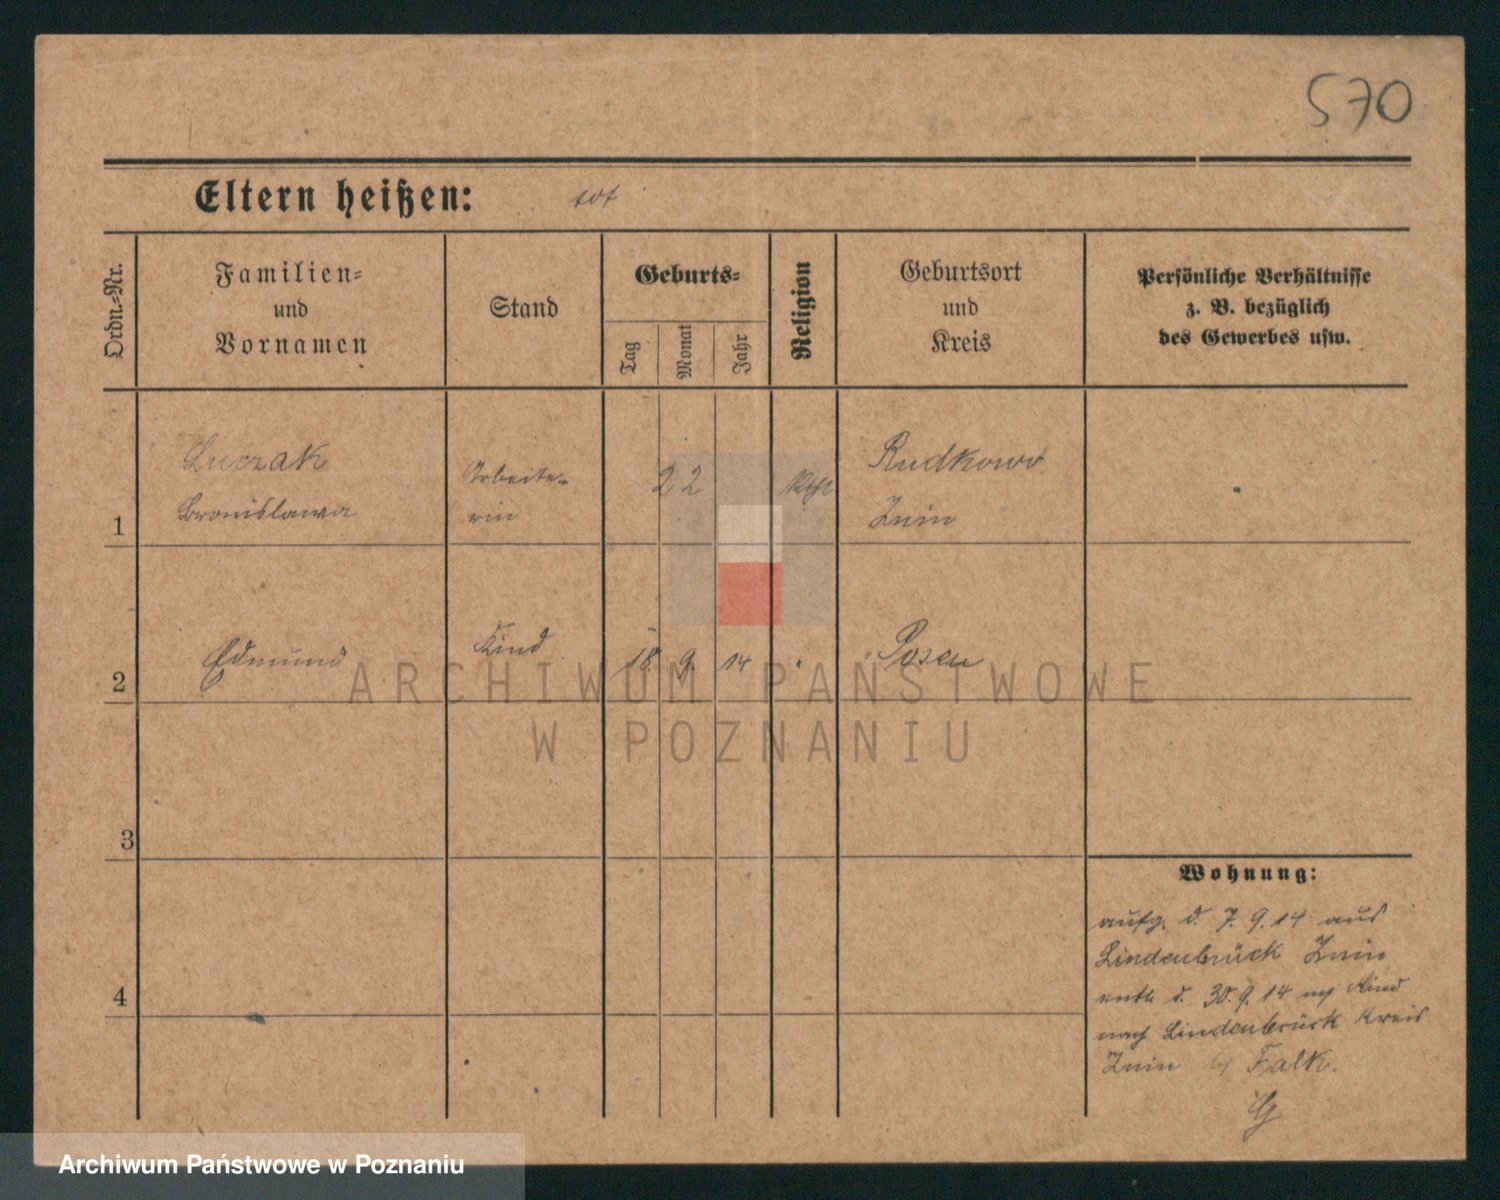 570
Eltern heißen: tot
Ordn.-Nr.
Familien-
und
Vornamen
Stand
Geburts-
Tag
Monat
Jahr
Religion
Geburtsort
und
Kreis
Persönliche Verhältnisse
z. B. bezüglich
des Gewerbes usw.
1
Luczak
Bronislawa
Arbeite-
rin
22
kath
Rudkowo
Znin
2
Edmund
Kind
18. 9. 14
"
Posen
3
4
Wohnung:
aufg. d. 7. 9. 14 aus
Lindenbrück Znin
entl. d. 30. 9. 14 m Kind
nach Lindenbrück Kreis
Znin Falk.
ARCHIWUM PAŃSTWOWE
W POZNANIU
Archiwum Państwowe w Poznaniu